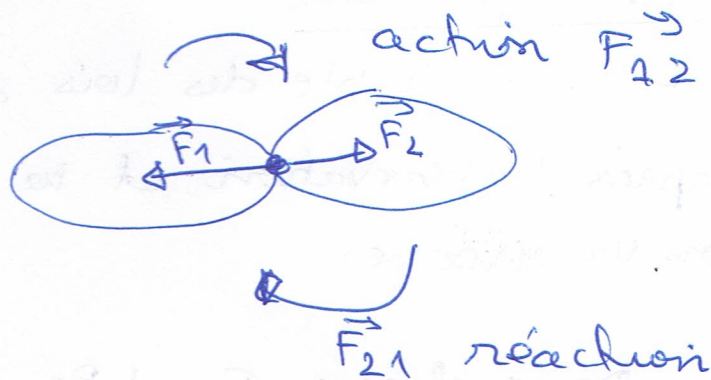 action F⃗₁₂
F⃗1 F⃗2
F⃗₂₁ réaction